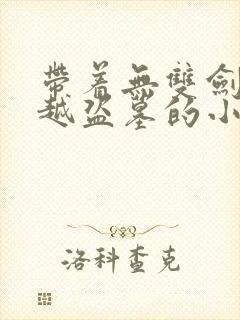 帶着無雙劍
越盜墓的小
洛科查克